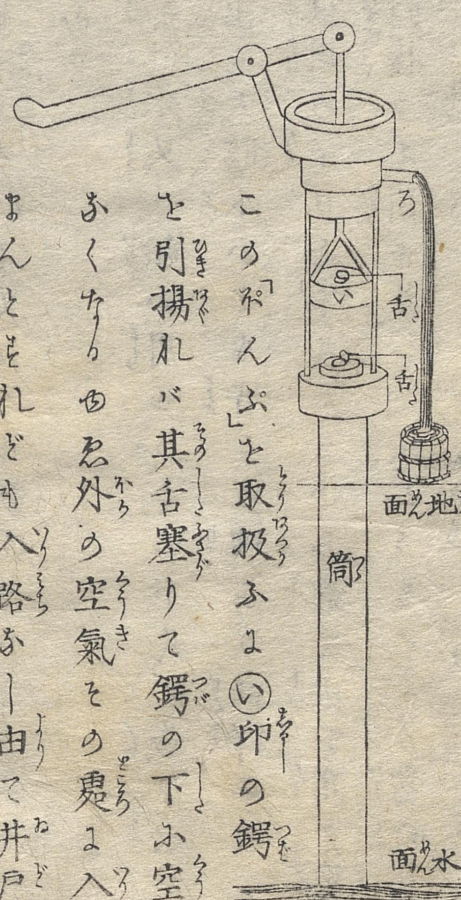 ろ
い
舌
舌
地面
筒
水面
この「ぽんぷ」を取扱ふに(い)印の鍔
を引揚れバ其舌塞りて鍔の下に空
なくなるゆゑ外の空氣その處に入
まんとすれども入路なし由て井戸